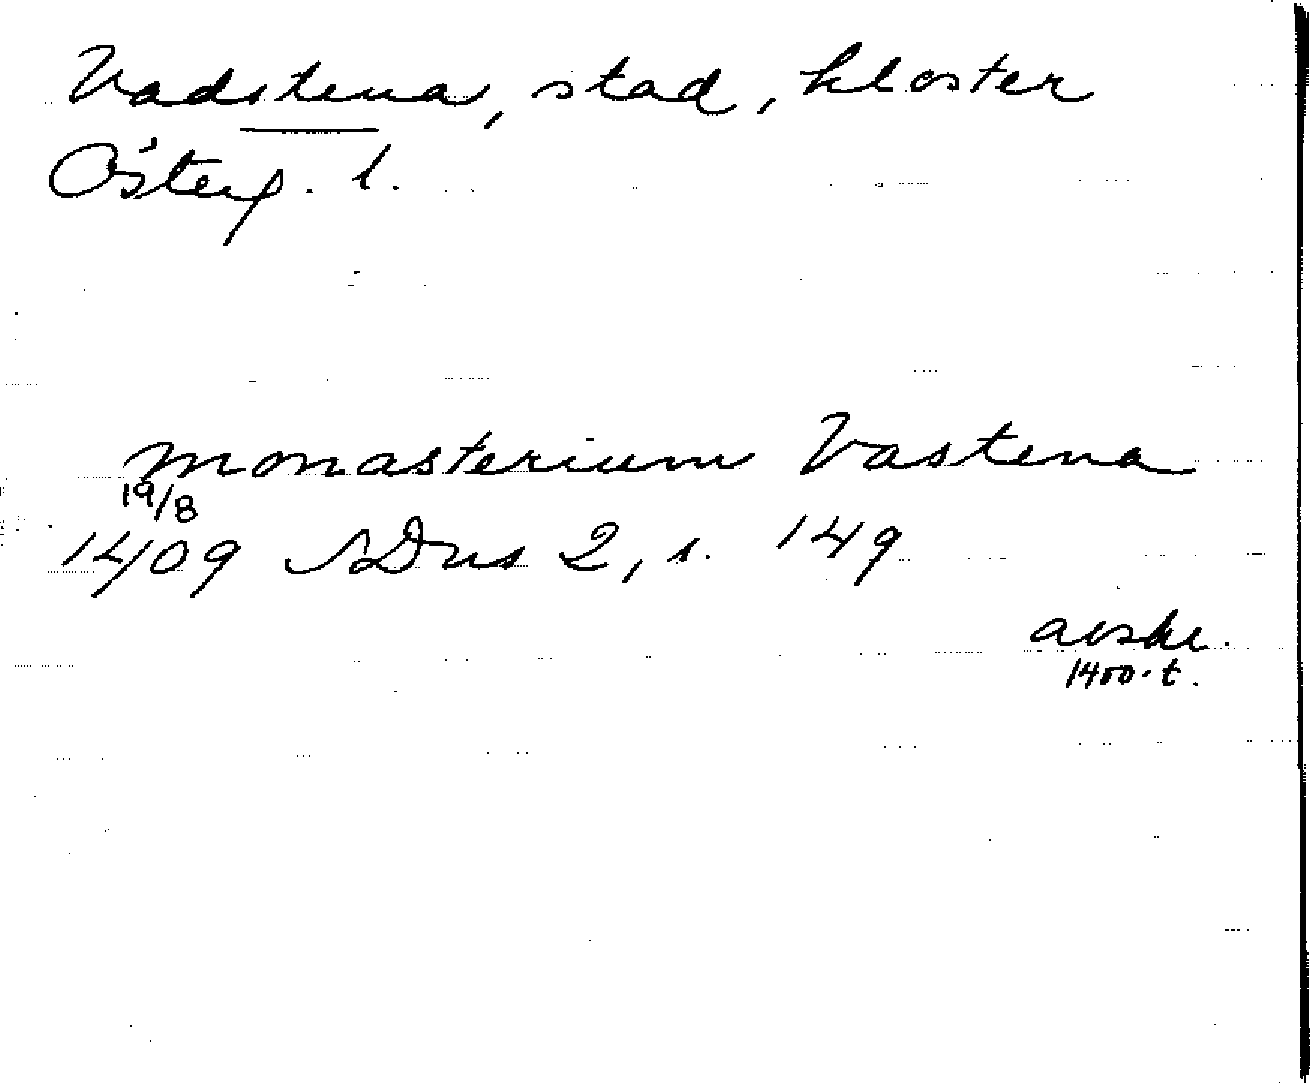 Vadstena, stad, kloster
Österg. l.
monasterium Vastena
19/8
1409 SDns 2, s. 149
avskr.
1400-t.